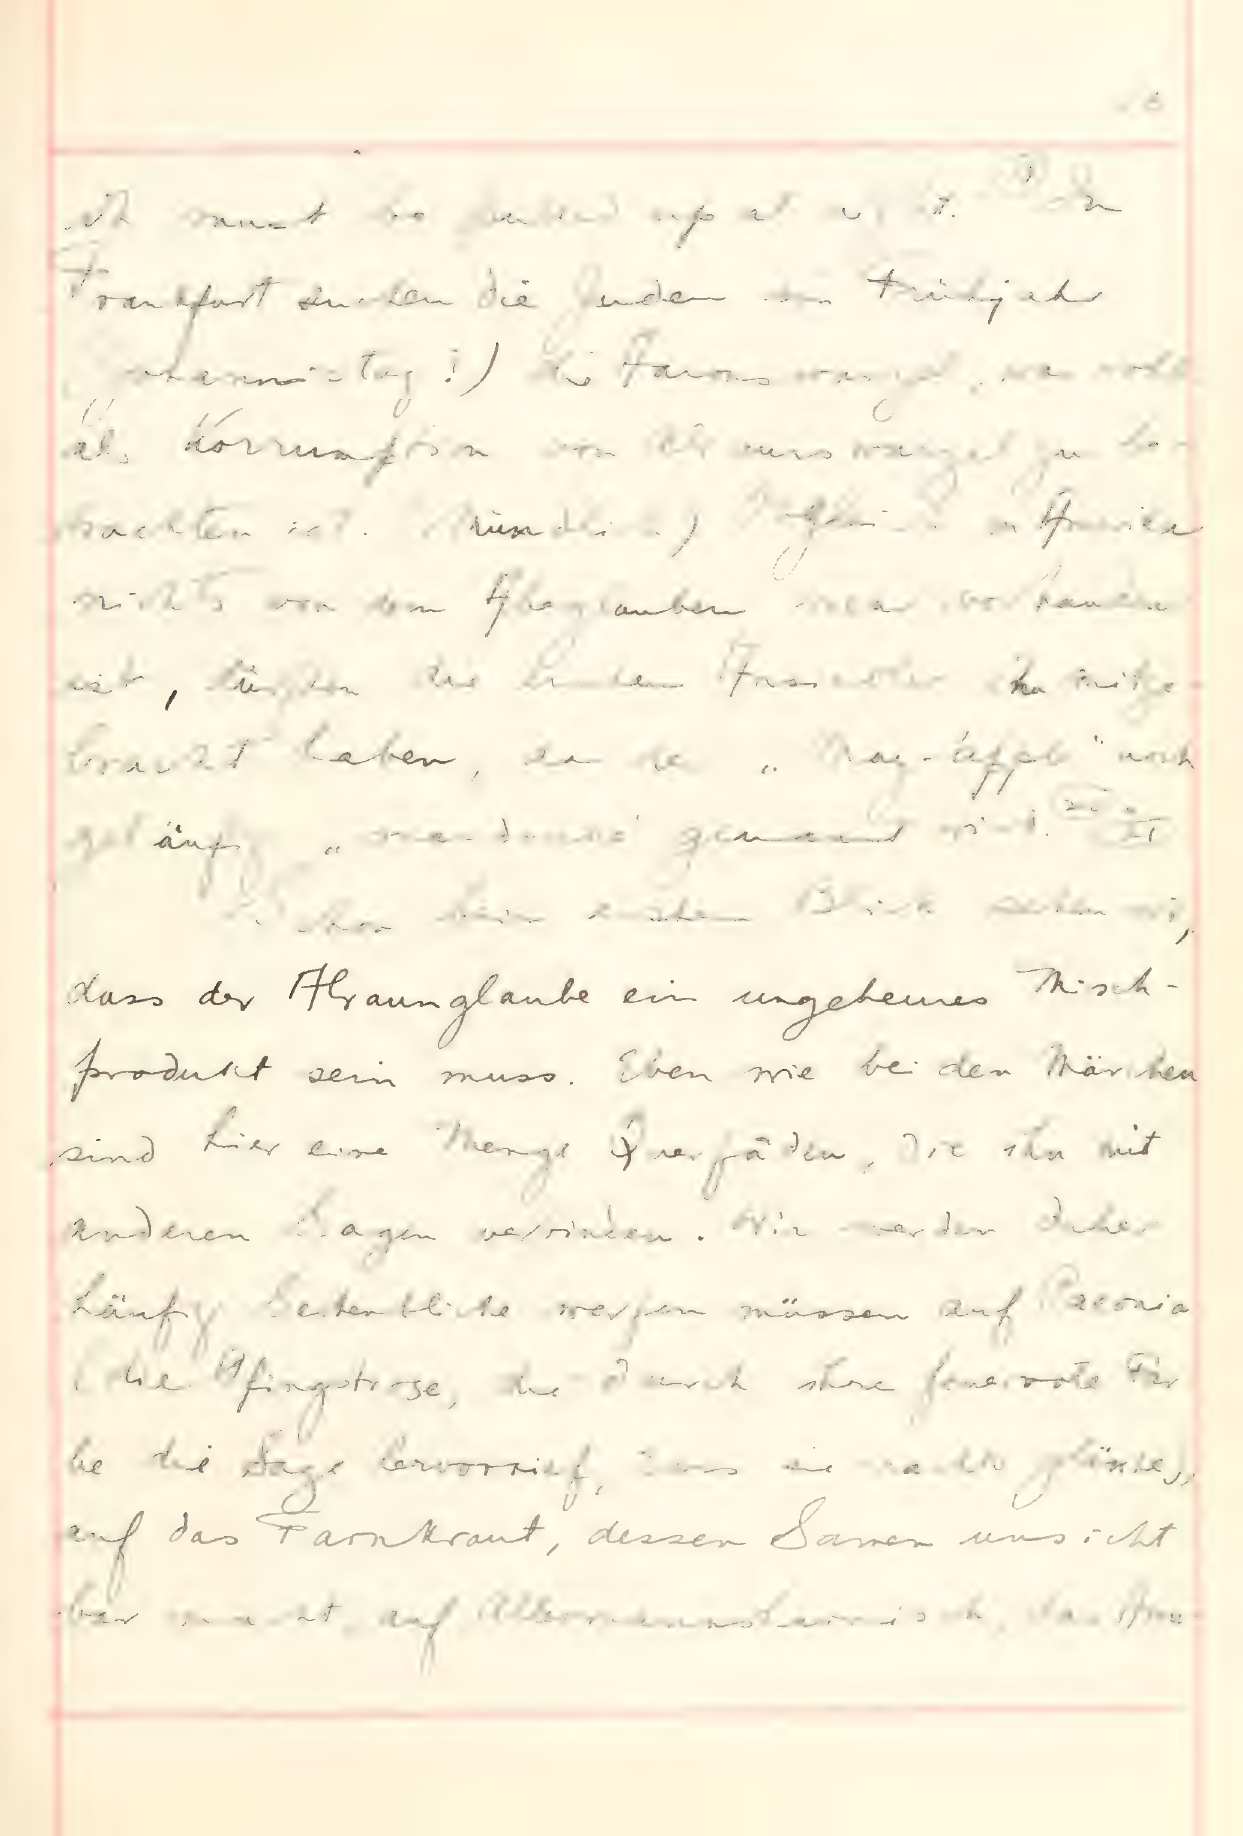 it must be pulled up at night. 1) In
Frankfurt suchen die Juden im Frühjahr
(Johannistag!) die Aaronswurzel, was wohl
als Korrumption von Alraunswurzel zu be-
trachten ist. (Mündlich) in Amerika
nichts von dem Aberglauben mehr vorhanden
ist, dürften die Ansiedler ihn mitge-
bracht haben, da der „May-apple" noch
geläufig „mandrake" genannt wird.
Schon beim ersten Blick sehen wir,
dass der Alraunglaube ein ungeheures Misch-
produkt sein muss. Eben wie bei den Märchen
sind hier eine Menge Querfäden, die ihn mit
anderen Sagen verbinden. Wir werden daher
häufig Seitenblicke werfen müssen auf Paeonia
(die Pfingstrose, die durch ihre feuerrote Far
be die Sage hervorrief, dass sie nachts glänze),
auf das Farnkraut, dessen Samen unsicht
bar macht, auf Allermannsharnisch, das